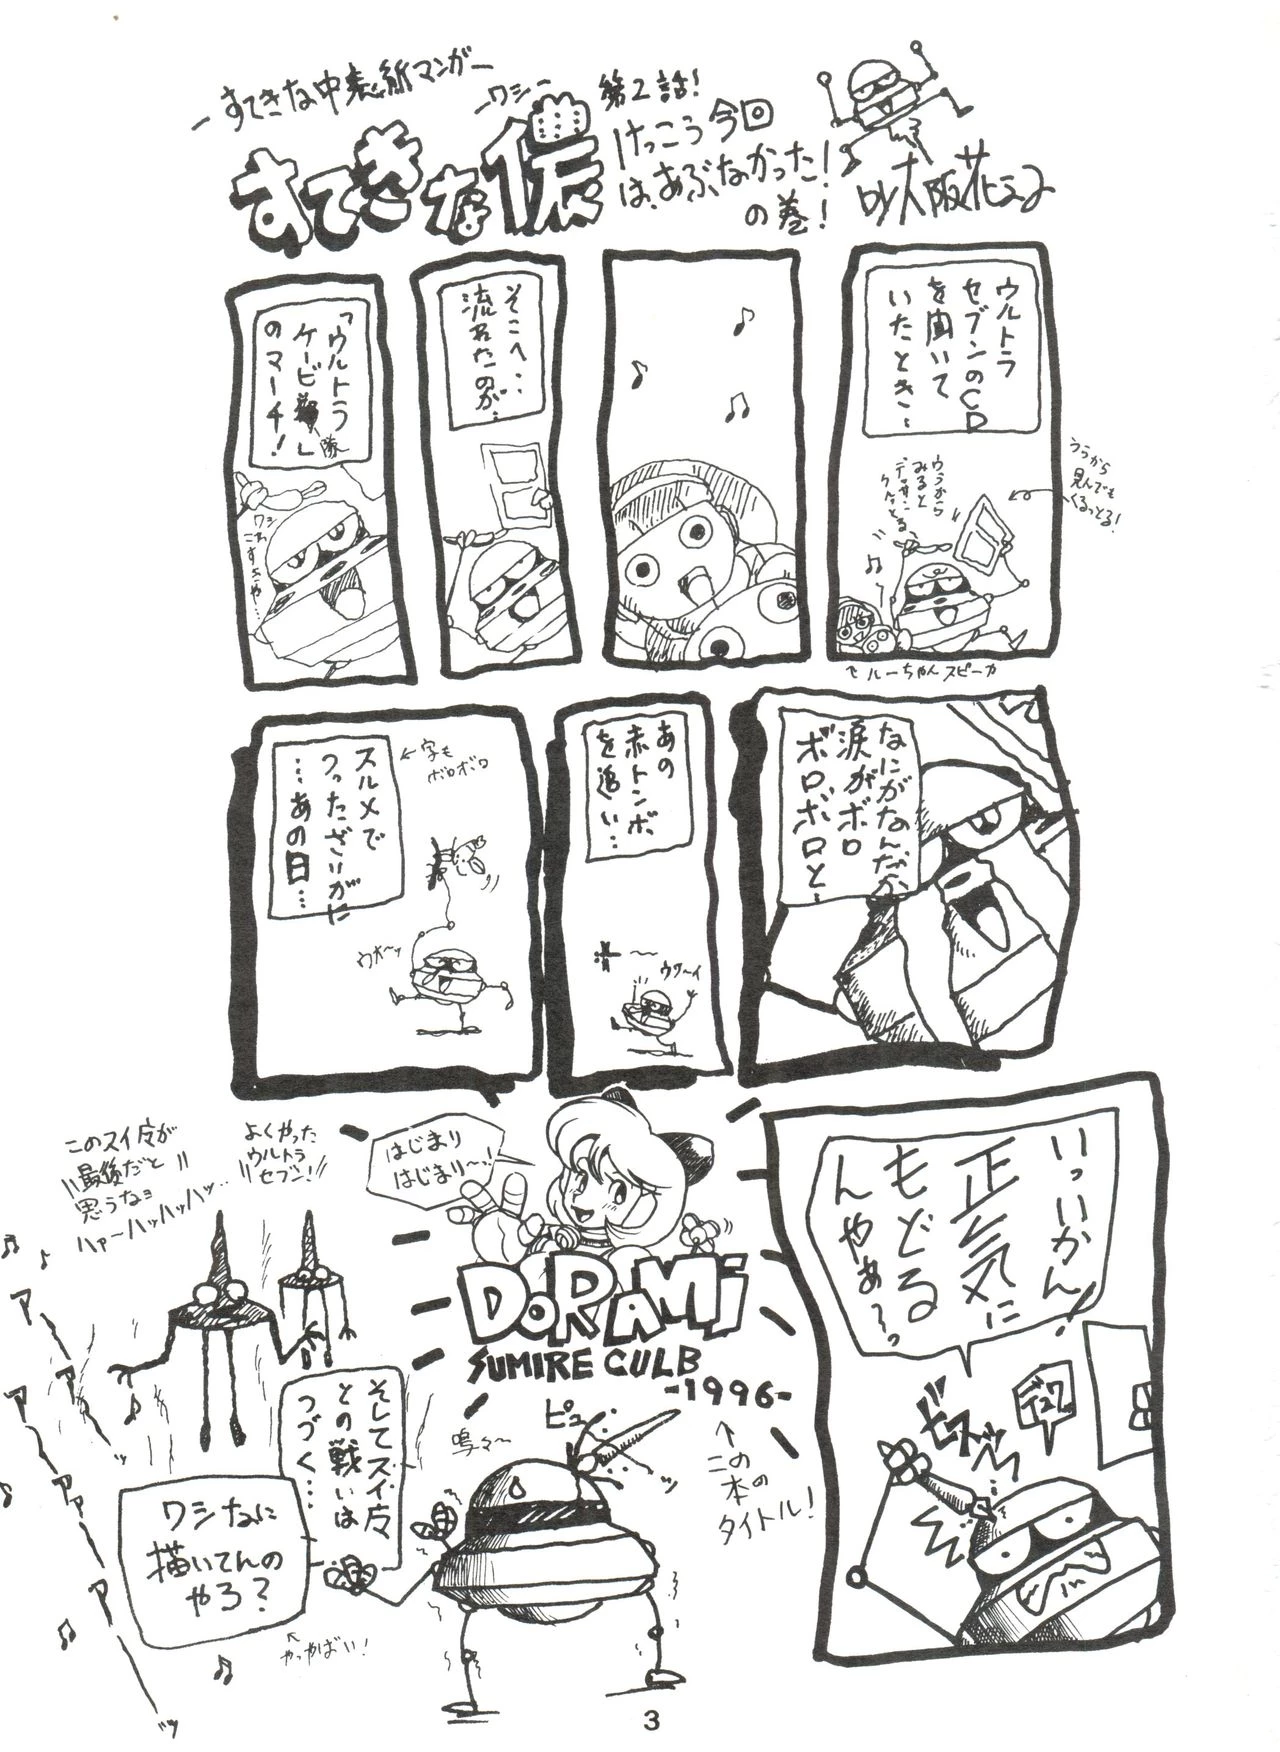 ーすてきな中表紙マンガー
すてきな儂
ーワシー
第2話!
けっこう今回
は、あぶなかった!
の巻!
by大阪花子
ウルトラ
セブンのCD
を聞いて
いたとき…
うらから
見んでも
くるっとる!
ウラから
みると
デッサン
クルっとる
ルーちゃんスピーカ
そこへ…
流れたのが…
「ウルトラ
ケービ隊」
のマーチ!
ワシ
これ
なにがなんだか
涙がボロ
ボロボロと…
あの
赤トンボ
を追い…
ウワ〜イ
スルメで
つったざりがに
…あの日…
←字も
ボロボロ
ウオ〜ッ
いっいかん!
正気に
もどる
んやぁ〜っ
ビスッッ
デュワ
はじまり
はじまり〜!
DORAMi
SUMIRE CULB
-1996-
↑
この
本の
タイトル!
よくやった
ウルトラ
セブン!
このスイ星が
最後だと
思うなョ
ハァ〜ハッハッハッ…
アーッ
アーアアアーーッ
そしてスイ星
との戦いは
つづく…
ワシなに
描いてんの
やろ?
やっやばい!
鳴々〜
ピュー
ッ
3